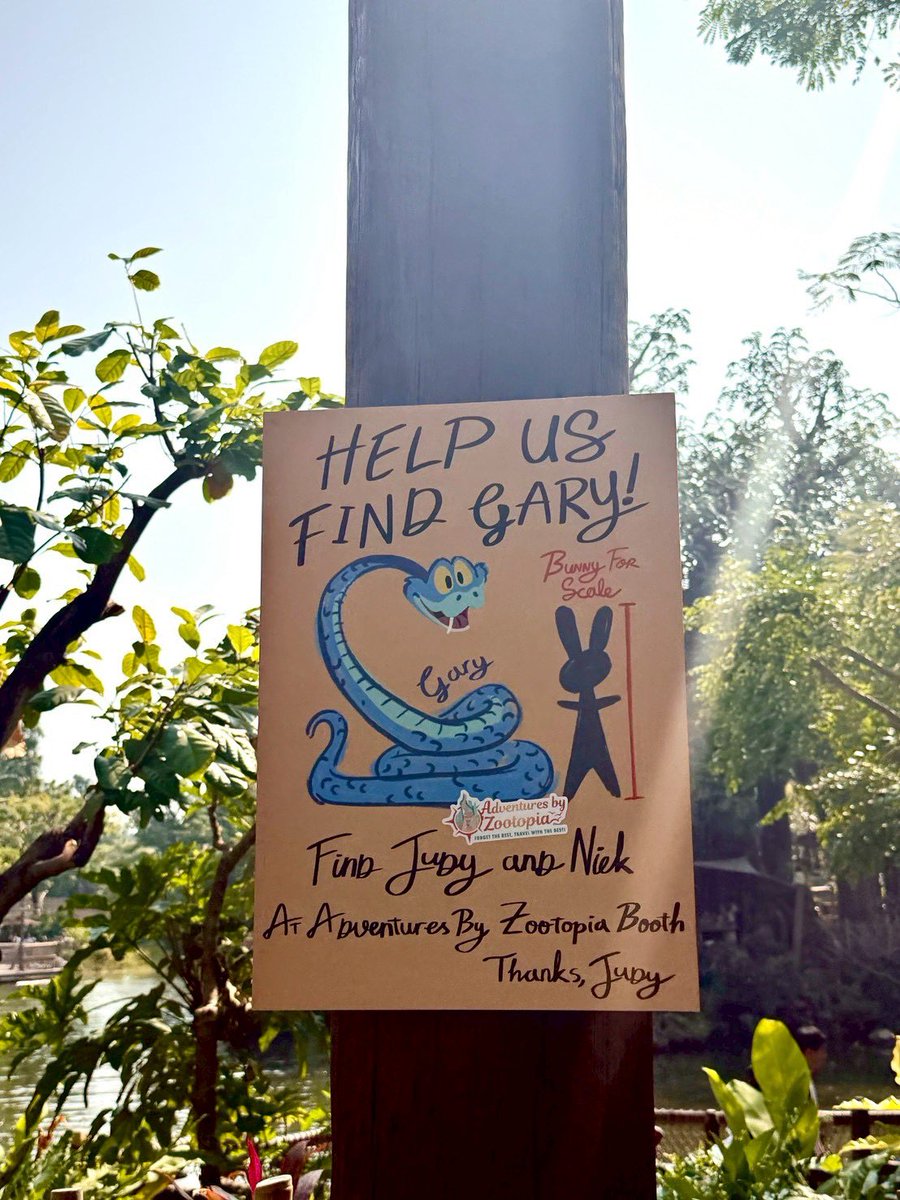 HELP US
FIND GARY!
BUNNY FOR
SCALE
Gary
Adventures by
Zootopia
FORGET THE REST, TRAVEL WITH THE BEST!
FIND JUDY AND NICK
AT ADVENTURES BY ZOOTOPIA BOOTH
THANKS, JUDY